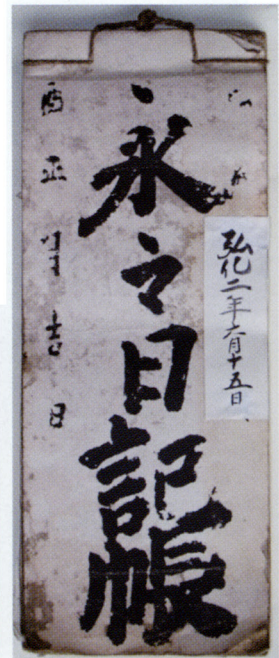 弘化二年六月十五日
永々日記帳
酉正月吉日